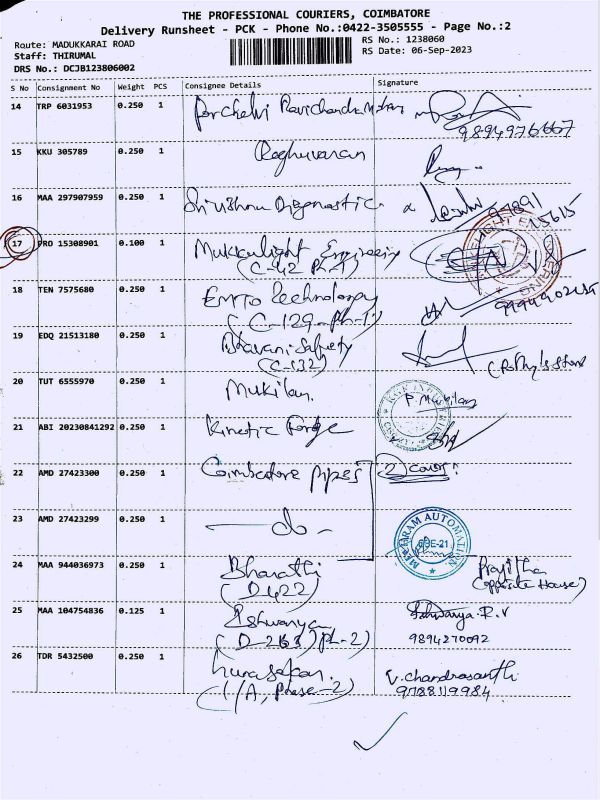 THE PROFESSIONAL COURIERS, COIMBATORE
Delivery Runsheet - PCK - Phone No.:0422-3505555 - Page No.:2
Route: MADUKKARAI ROAD RS No.: 1238060
Staff: THIRUMAL RS Date: 06-Sep-2023
DRS No.: DCJB123806002
S No Consignment No Weight PCS Consignee Details Signature
14 TRP 6031953 0.250 1 Ravichandran
9894976667
15 KKU 305789 0.250 1 Raghuvaran
16 MAA 297907959 0.250 1 Diagnostic 97891
15615
17 PRO 15308901 0.100 1
(C-42 Ph-1)
18 TEN 7575680 0.250 1 Technology
(C-129-Ph-1)
19 EDQ 21513180 0.250 1 Bhavani Safety
(C-132)
20 TUT 6555970 0.250 1 Mukilan. P. Mukilan
21 ABI 20230841292 0.250 1 Kinetic Forge
22 AMD 27423300 0.250 1 Coimbatore pipes (2) cours:
23 AMD 27423299 0.250 1 - do -
AUTOMATION
24 MAA 944036973 0.250 1 Bharathi
(D422) (opposite House)
25 MAA 104754836 0.125 1 Eshwarya Ishwarya.R.V
(D-263) Ph-2) 9894270092
26 TDR 5432500 0.250 1 V.chandrasanthi
(1/A, Phase-2) 9788119984